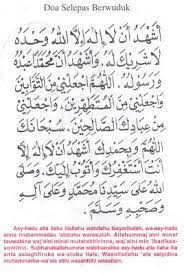 Doa Selepas Berwuduk
أَشْهَدُ أَنْ لَا إِلَهَ إِلَّا اللَّهُ وَحْدَهُ
لَا شَرِيكَ لَهُ. وَأَشْهَدُ أَنَّ مُحَمَّدًا عَبْدُهُ
وَرَسُولُهُ. اَللَّهُمَّ اجْعَلْنِي مِنَ التَّوَّابِينَ
وَاجْعَلْنِي مِنَ الْمُتَطَهِّرِينَ. وَاجْعَلْنِي مِنْ
عِبَادِكَ الصَّالِحِينَ. سُبْحَانَكَ
اللَّهُمَّ وَبِحَمْدِكَ أَشْهَدُ أَنْ لَا إِلَهَ
إِلَّا أَنْتَ أَسْتَغْفِرُكَ وَأَتُوبُ إِلَيْكَ. وَصَلَّى
اللَّهُ عَلَى سَيِّدِنَا مُحَمَّدٍ وَعَلَى آلِهِ
وَصَحْبِهِ وَسَلَّمَ.
Asy-hadu alla ilaha illallahu wahdahu laasyarikalah, wa-asy-hadu
anna muhammadan 'abduhu warasuluh. Allahummaj'alni minat
tauwabina waj'alni minal mutathahhirina, waj'alni min 'ibadikas-
solihin. Subhanakallahumma wabihamdika asy-hadu alla ilaha illa
anta astaghfiruka wa-atubu ilaik. Wasollallahu 'ala saiyidina
muhammadiw-wa'ala alihi wasahbihi wasallam.